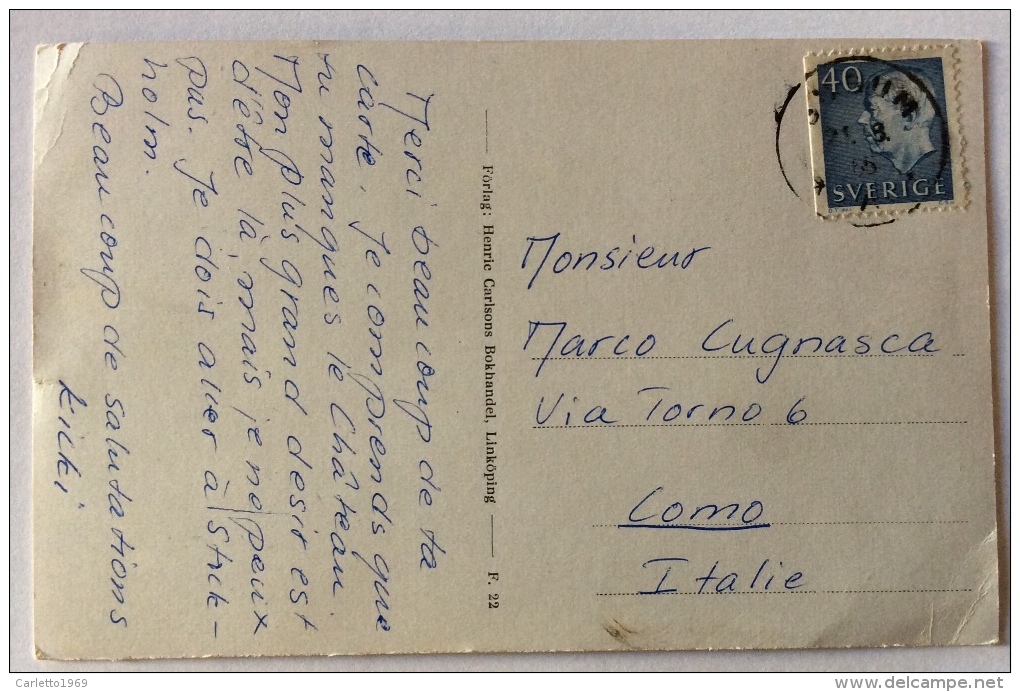 Merci beaucoup de ta
carte. Je comprends que
tu manques le Château
Mon plus grand desir est
d'être là, mais je ne peux
pas. Je dois aller à Stck-
holm.
Beaucoup de salutations
Kicki
Förlag: Henric Carlsons Bokhandel, Linköping
F. 22
40
SVERIGE
Monsieur
Marco Cugnasca
Via Torno 6
Como
Italie
Carletto1969
delcampe.net